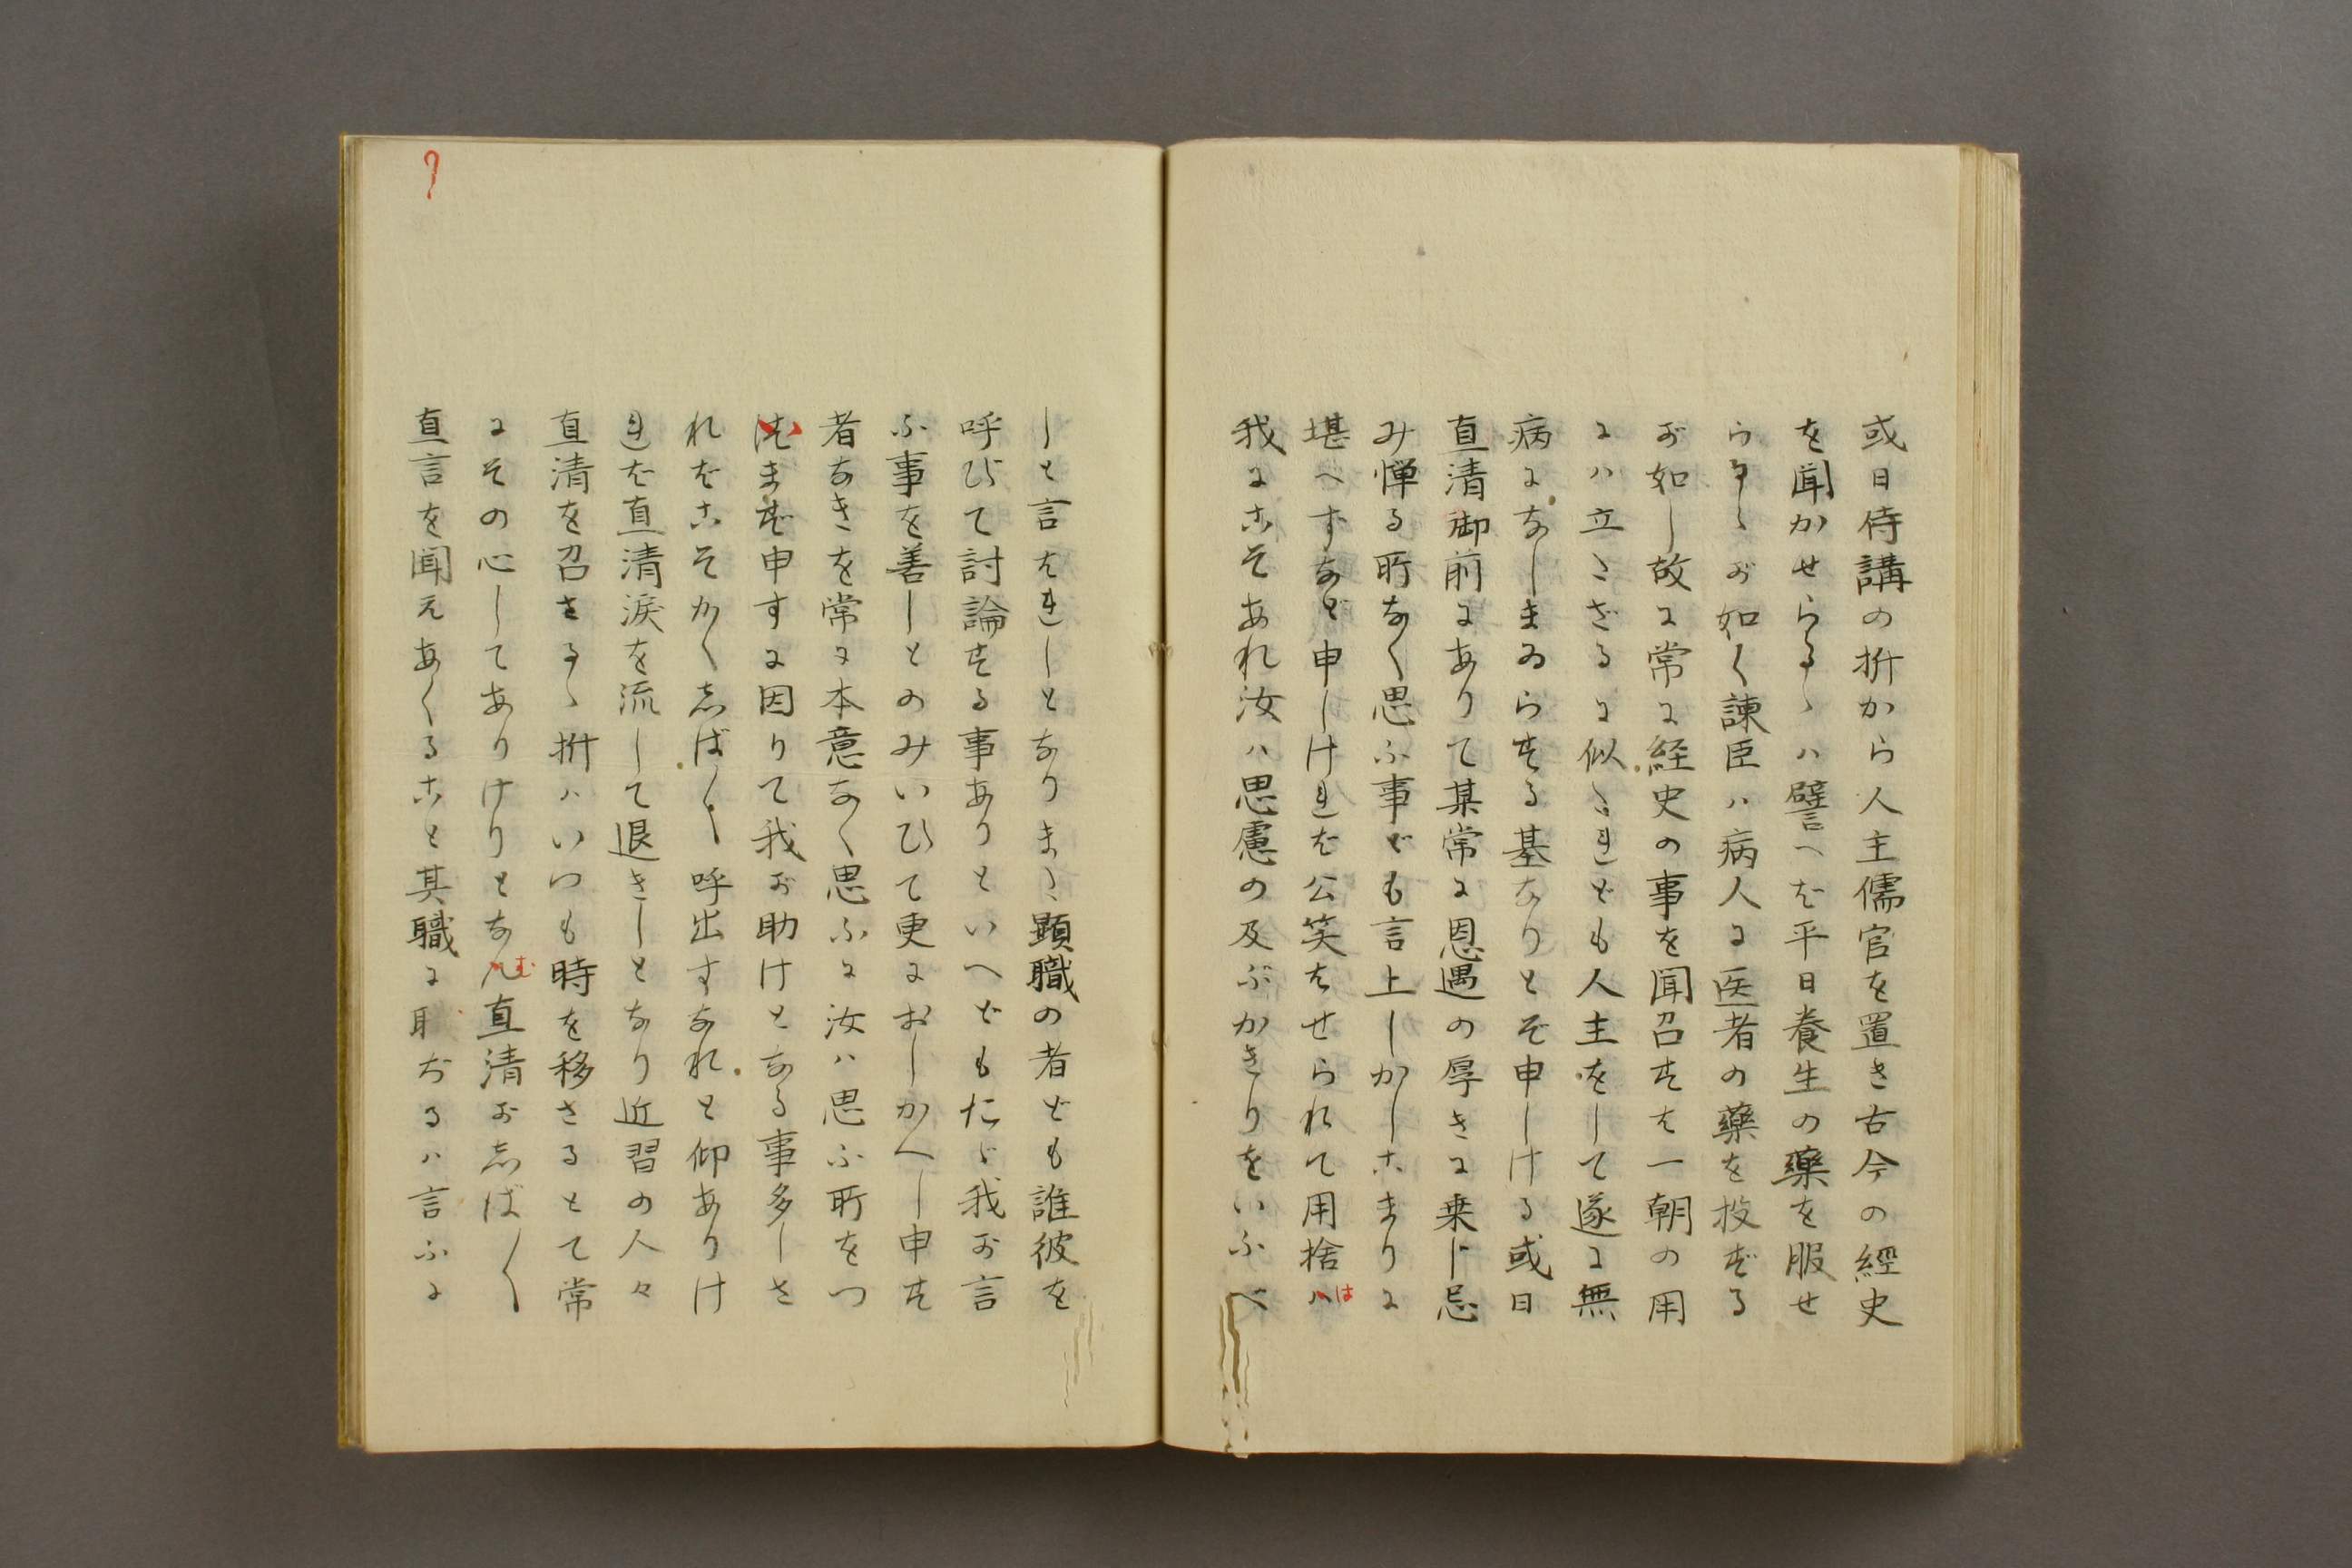 或日侍講の折から人主儒官を置き古今の經史
を聞かせらるゝハ譬へば平日養生の藥を服せ
らるゝが如く諫臣ハ病人に医者の藥を投ずる
が如し故に常に経史の事を聞召せば一朝の用
にハ立たざるに似たれども人主をして遂に無
病になしまゐらする基なりとぞ申しける或日
直清御前にありて某常に恩遇の厚きに乗じ忌
み憚る所なく思ふ事ども言上しかしこまりに
堪へずなど申しければ公笑はせられて用捨ハは
我にこそあれ汝ハ思慮の及ぶかきりをいふべ
しと言はれしとなりまた顕職の者ども誰彼を
呼びて討論する事ありといへどもたゞ我が言
ふ事を善しとのみいひて更におしかへし申す
者なきを常に本意なく思ふに汝ハ思ふ所をつ
つまず申すに因りて我が助けとなる事多しさ
ればこそかくしば〳〵呼出すなれと仰ありけ
れば直清涙を流して退きしとなり近習の人々
直清を召さるゝ折ハいつも時を移さるとて常
にその心してありけりとなんむ直清がしば〳〵
直言を聞えあくること其職に恥ぢるハ言ふに